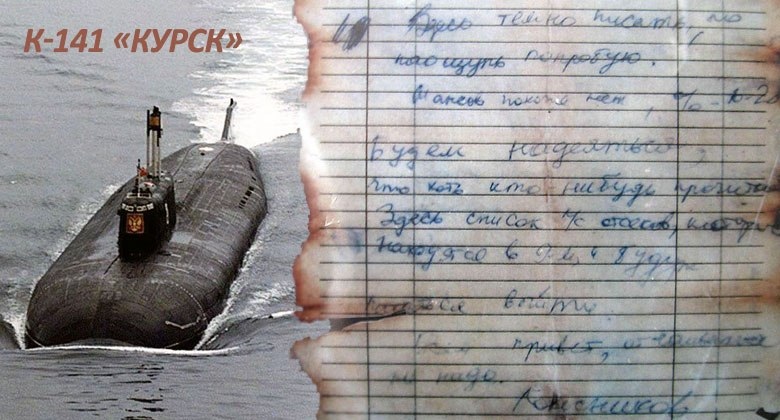 К-141 «КУРСК»
Здесь темно писать, но
наощупь попробую.
Шансов похоже нет, %
Будем надеяться,
что хоть кто-нибудь прочита
Здесь список л/с отсеков, которые
находятся в 9-м, и будут
выйти.
привет, отчаиваться
не надо.
Колесников